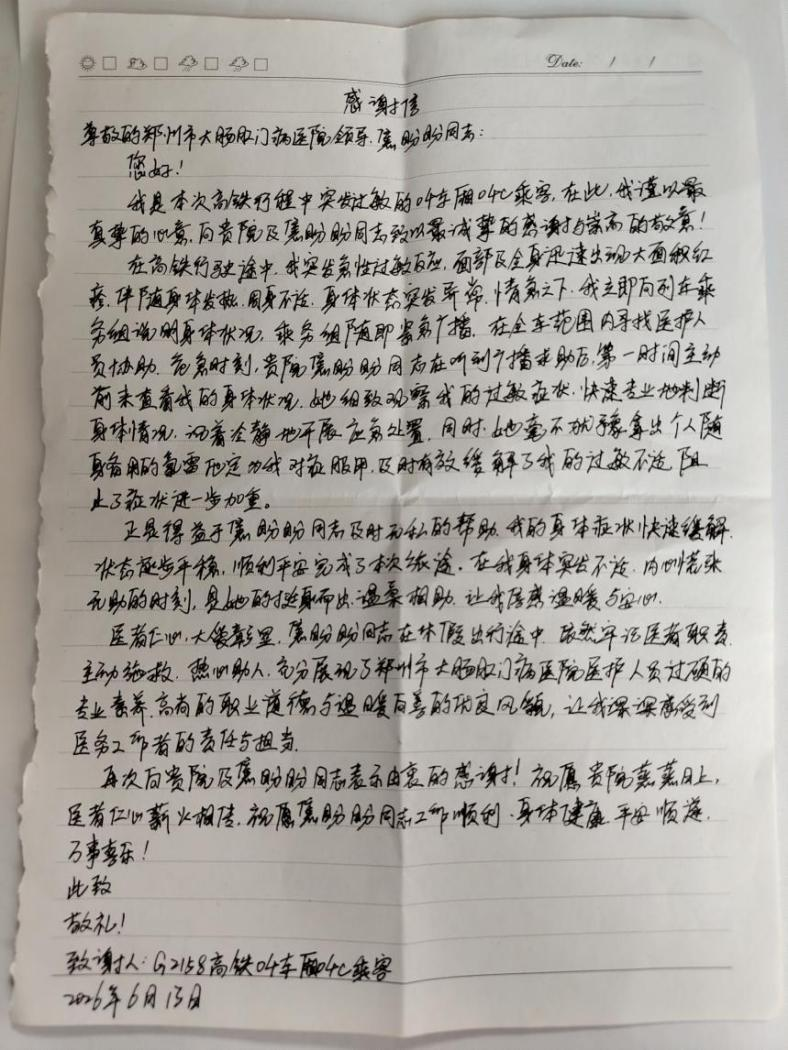 Date: / /
感谢信
尊敬的郑州市大肠肛门病医院领导、焦盼盼同志:
您好!
我是本次高铁行程中突发过敏的04车厢04C乘客,在此,我谨以最
真挚的心意,向贵院及焦盼盼同志致以最诚挚的感谢与崇高的敬意!
在高铁行驶途中,我突发急性过敏反应,面部及全身迅速出现大面积红
疹,伴随身体发热、周身不适,身体状态突发异常,情急之下,我立即向列车乘
务组说明身体状况,乘务组随即紧急广播,在全车范围内寻找医护人
员协助。危急时刻,贵院焦盼盼同志在听到广播求助后,第一时间主动
前来查看我的身体状况,她细致观察我的过敏症状,快速专业地判断
身体情况,沉着冷静地开展应急处置,同时,她毫不犹豫拿出个人随
身备用的氯雷他定为我对症服用,及时有效缓解了我的过敏不适,阻
止了症状进一步加重。
正是得益于焦盼盼同志及时无私的帮助,我的身体症状快速缓解,
状态逐步平稳,顺利平安完成了本次旅途。在我身体突发不适、内心慌张
无助的时刻,是她的挺身而出、温柔相助,让我倍感温暖与安心。
医者仁心,大爱彰显,焦盼盼同志在休假出行途中,依然牢记医者职责,
主动施救、热心助人,充分展现了郑州市大肠肛门病医院医护人员过硬的
专业素养、高尚的职业道德与温暖向善的优良风貌,让我深深感受到
医务工作者的责任与担当。
再次向贵院及焦盼盼同志表示由衷的感谢!祝愿贵院蒸蒸日上,
医者仁心薪火相传,祝愿焦盼盼同志工作顺利、身体健康、平安顺遂、
万事喜乐!
此致
敬礼!
致谢人:G2158高铁04车厢04C乘客
2026年6月13日